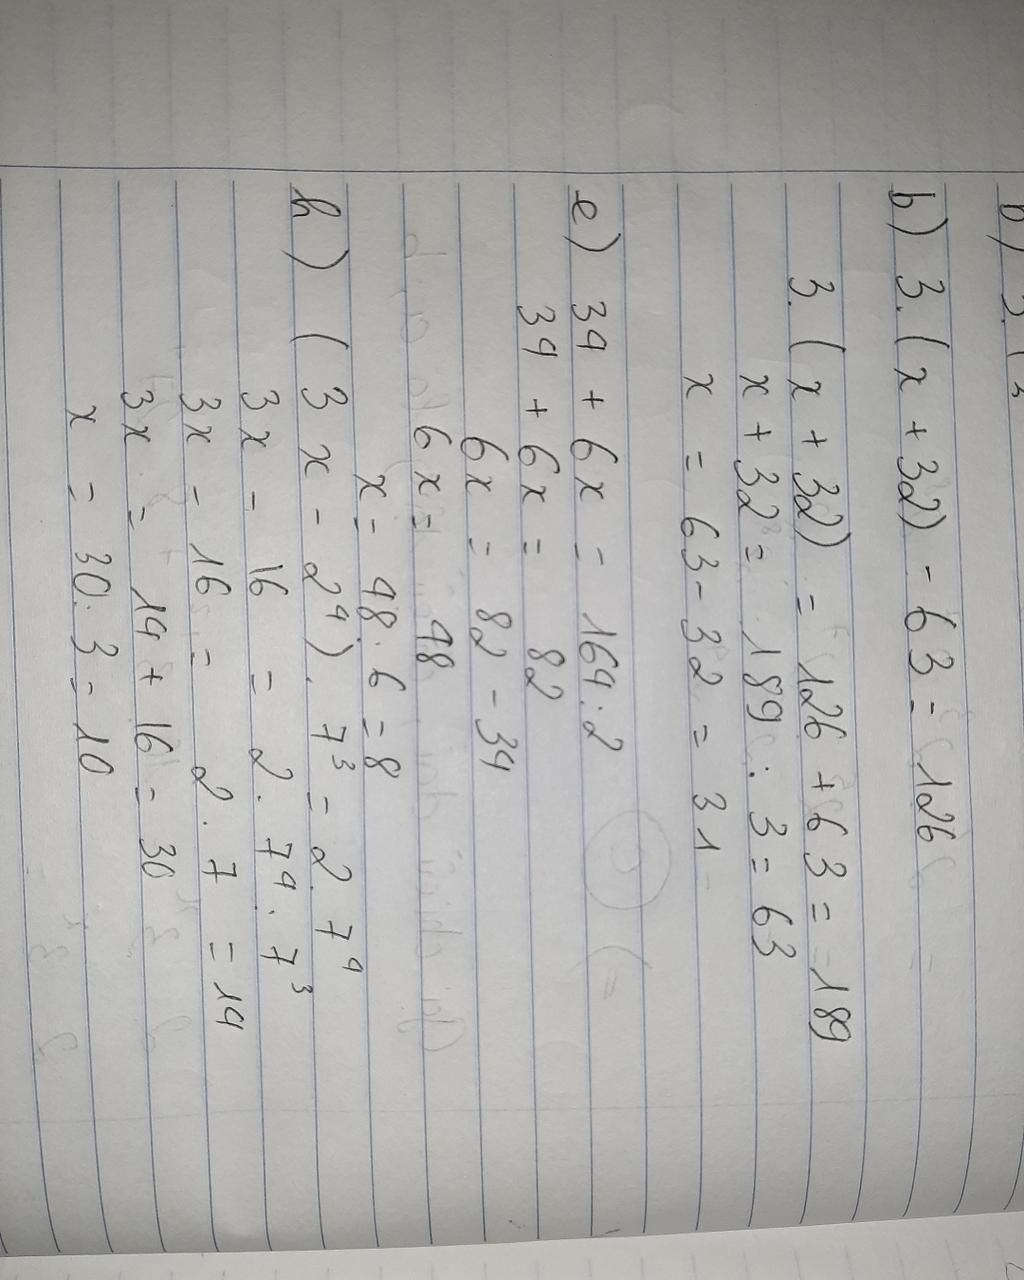 b) 3.(x + 32) - 63 = 126
3.(x + 32) = 126 + 63 = 189
x + 32 = 189 : 3 = 63
x = 63 - 32 = 31
e) 34 + 6x = 164 : 2
34 + 6x = 82
6x = 82 - 34
6x = 48
x = 48 : 6 = 8
h) (3x - 2⁴). 7³ = 2 7⁴
3x - 16 = 2. 7⁴ . 7³
3x - 16 = 2 . 7 = 14
3x = 14 + 16 = 30
x = 30 : 3 = 10